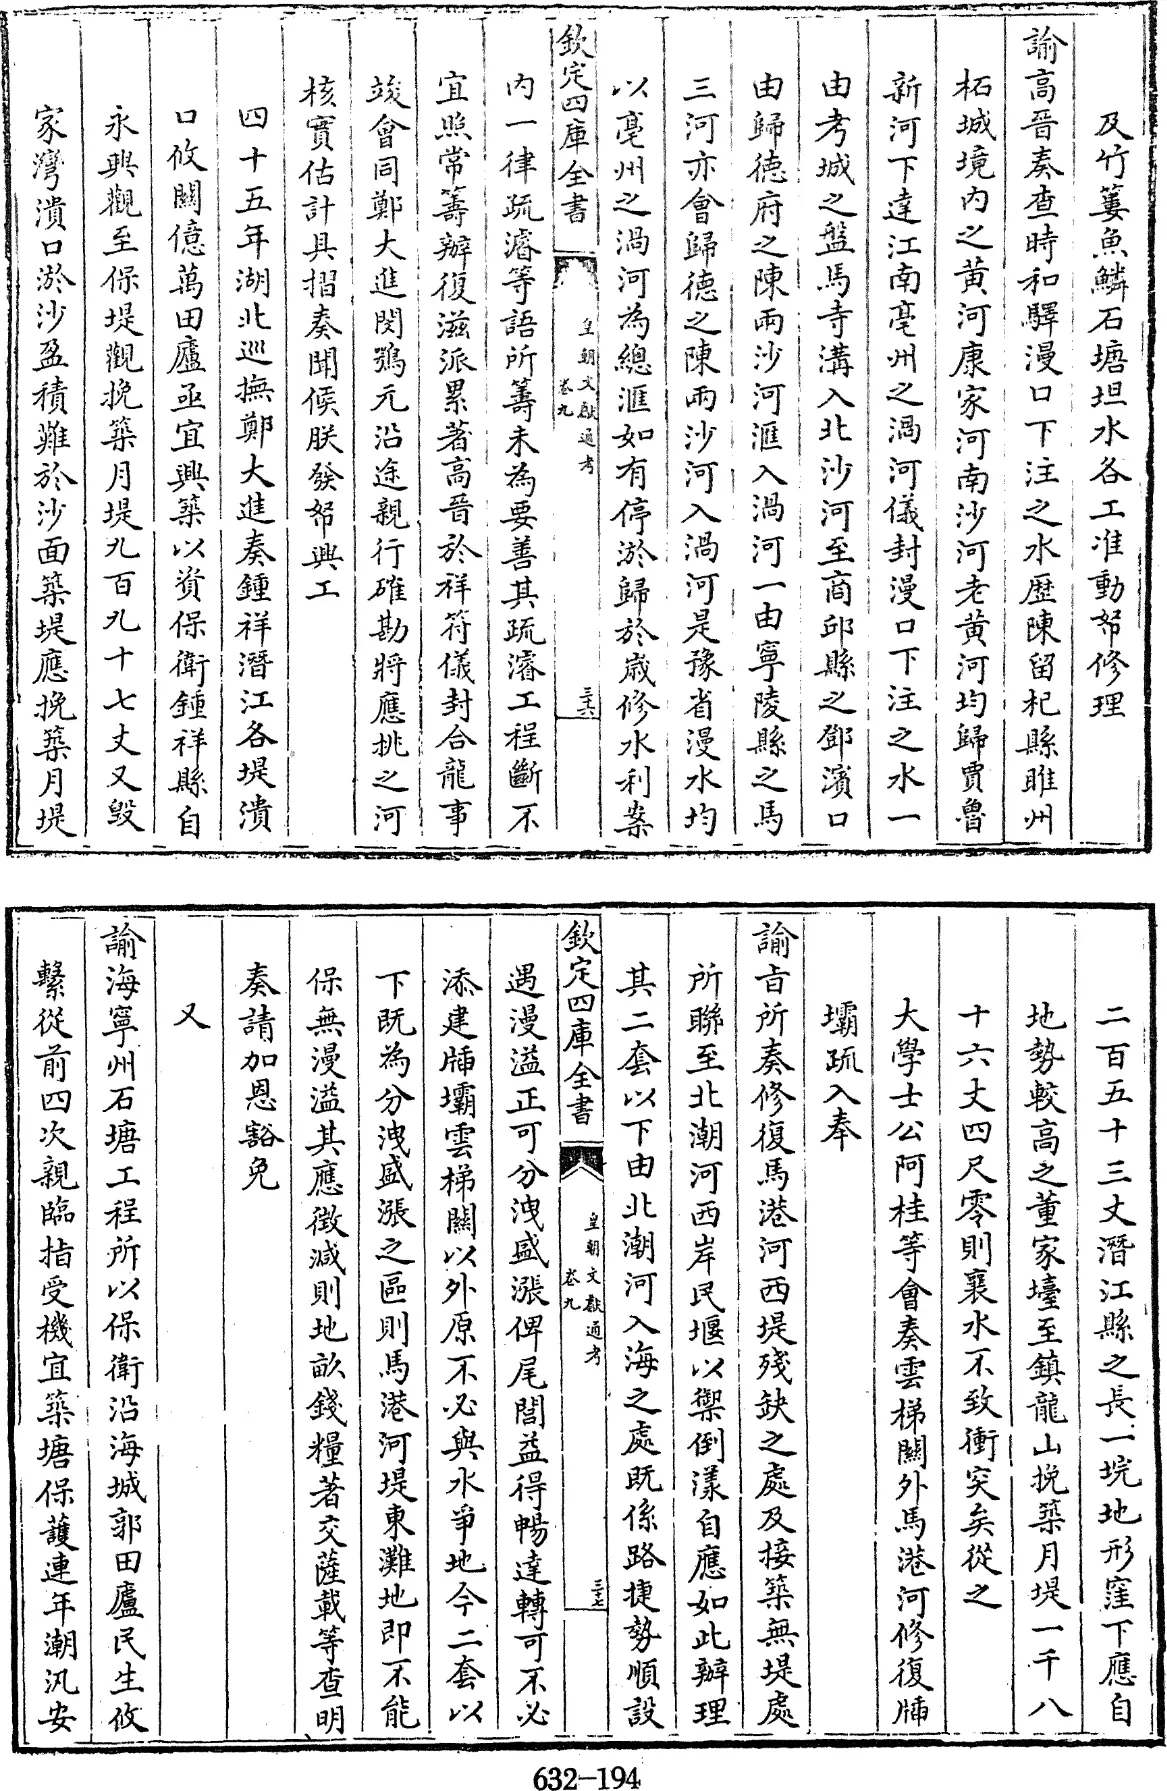 及竹簍魚鱗石塘坦水各工准動帑修理
諭高晉奏查時和驛漫口下注之水歷陳留杞縣睢州
柘城境内之黄河康家河南沙河老黄河均歸賈魯
新河下達江南亳州之渦河儀封漫口下注之水一
由考城之盤馬寺溝入北沙河至商邱縣之鄧濱口
由歸德府之陳兩沙河滙入渦河一由寧陵縣之馬
三河亦會歸德之陳兩沙河入渦河是豫省漫水均
以亳州之渦河為總滙如有停淤歸於歲修水利案
欽定四庫全書
皇朝文獻通考
卷九
三六
内一律疏濬等語所籌未為要善其疏濬工程斷不
宜照常籌辦復滋派累著高晉於祥符儀封合龍事
竣會同鄭大進閔鶚元沿途親行確勘將應挑之河
核實估計具摺奏聞候朕發帑興工
四十五年湖北巡撫鄭大進奏鍾祥潛江各堤潰
口攸關億萬田廬亟宜興築以資保衛鍾祥縣自
永興觀至保堤觀挽築月堤九百九十七丈又毀
家灣潰口淤沙盈積難於沙面築堤應挽築月堤
二百五十三丈潛江縣之長一垸地形窪下應自
地勢較高之董家壋至鎮龍山挽築月堤一千八
十六丈四尺零則襄水不致衝突矣從之
大學士公阿桂等會奏雲梯關外馬港河修復牐
壩疏入奉
諭㫖所奏修復馬港河西堤殘缺之處及接築無堤處
所聯至北潮河西岸民堰以禦倒漾自應如此辦理
其二套以下由北潮河入海之處既係路捷勢順設
欽定四庫全書
皇朝文獻通考
卷九
三十七
遇漫溢正可分洩盛漲俾尾閭益得暢達轉可不必
添建牐壩雲梯關以外原不必與水爭地今二套以
下既為分洩盛漲之區則馬港河堤東灘地即不能
保無漫溢其應徵減則地畝錢糧著交薩載等查明
奏請加恩豁免
又
諭海寧州石塘工程所以保衛沿海城郭田廬民生攸
繫從前四次親臨指受機宜築塘保護連年潮汛安
632-194